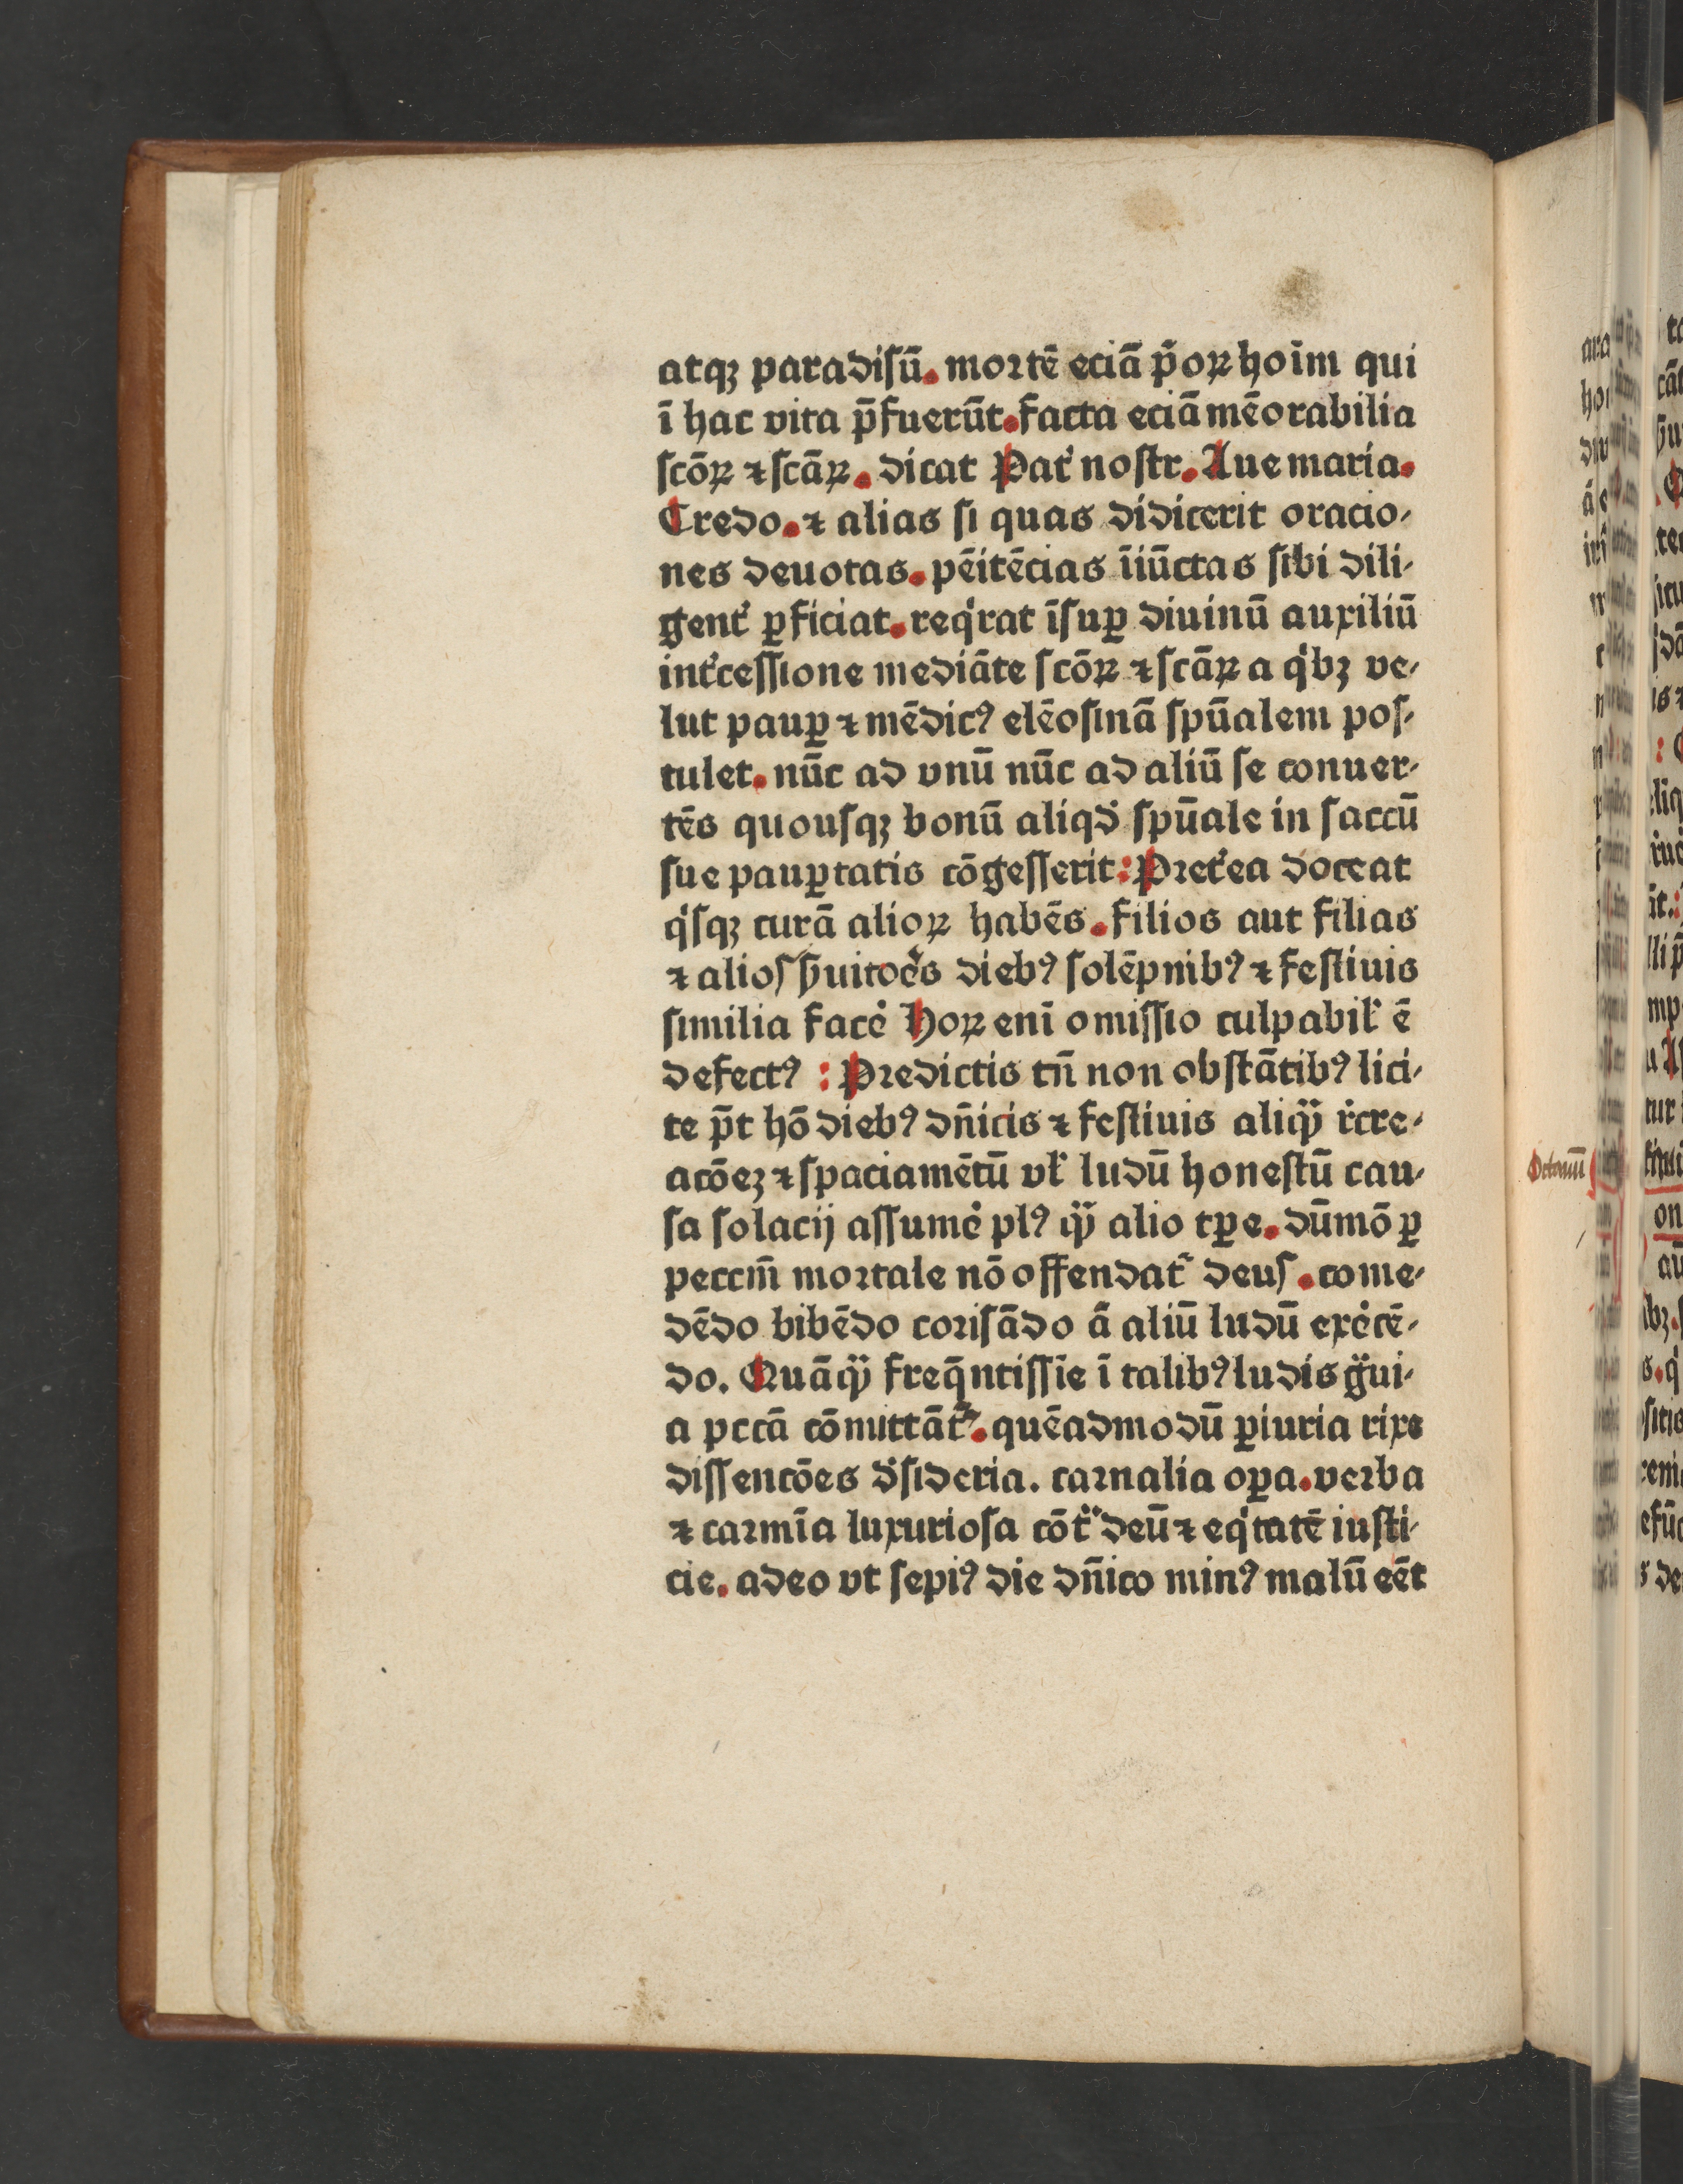 atqꝫ paradiſū. mortē eciā p̄oꝝ hoīm qui
ī hac vita p̄fuerūt. facta eciā mēorabilia
ſcōꝝ ⁊ ſcāꝝ. dicat Pat᷑ noſtr. Aue maria.
Credo. ⁊ alias ſi quas didicerit oracio⸗
nes deuotas. pēitēcias īiūctas ſibi dili⸗
gent᷑ ꝑficiat. reqͥrat īſuꝑ diuinū auxiliū
int᷑ceſſione mediāte ſcōꝝ ⁊ ſcāꝝ a qͥbꝫ ve⸗
lut pauꝑ ⁊ mēdicꝰ elēoſinā ſpūalem poſ⸗
tulet. nūc ad vnū nūc ad aliū ſe conuer⸗
tēs quouſqꝫ bonū aliqd᷑ ſpūale in ſaccū
ſue pauꝑtatis cōgeſſerit: Pret᷑ea doceat
qͥſqꝫ curā alioꝝ habēs. filios aut filias
⁊ alioſ ẜuitoēs diebꝰ ſolēpnibꝰ ⁊ feſtiuis
ſimilia facē Hoꝝ enī omiſſio culpabil᷑ ē
defectꝰ : Predictis tn̄ non obſtātibꝰ lici⸗
te p̄t hō diebꝰ dn̄icis ⁊ feſtiuis aliqᷓ r᷑cre⸗
acōeꝫ ⁊ ſpaciamētū vl᷑ ludū honeſtū cau⸗
ſa ſolacij aſſumē plꝰ qᷓ alio tꝑe. dūmō ꝑ
peccm̄ mortale nō offendat᷑ deuſ. come⸗
dēdo bibēdo coriſādo ā aliū ludū exēcē⸗
do. Quāqᷓ freq̄ntiſſīe ī talibꝰ ludis gᷓui⸗
a pccā cōmittāt᷑. quēadmodū ꝑiuria rixe
diſſencōes d᷑ſideria. carnalia oꝑa. verba
⁊ carmīa luxurioſa cōtᷓ deū ⁊ eqͥtatē iuſti⸗
cie. adeo vt ſepiꝰ die dn̄ico minꝰ malū eēt